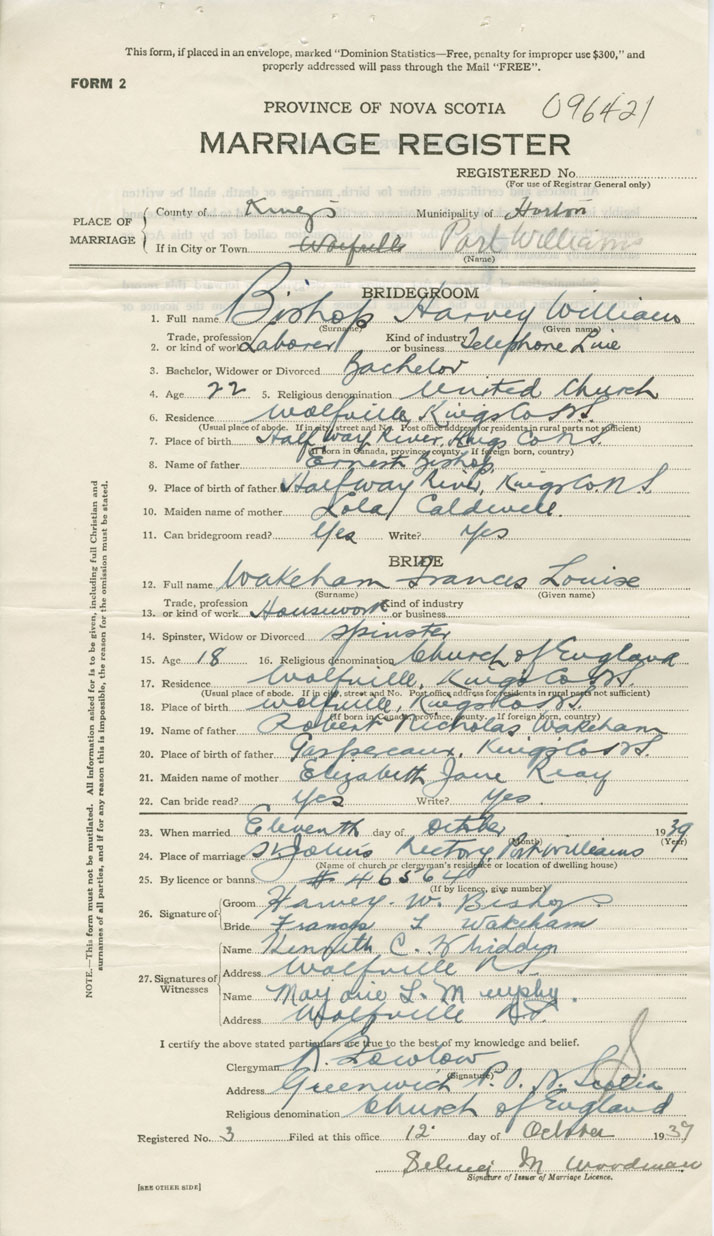 This form, if placed in an envelope, marked "Dominion Statistics—Free, penalty for improper use $300," and
properly addressed will pass through the Mail "FREE".
FORM 2
PROVINCE OF NOVA SCOTIA 096421
MARRIAGE REGISTER
REGISTERED No.
(For use of Registrar General only)
PLACE OF MARRIAGE
County of Kings Municipality of Horton
If in City or Town Wolfville Port Williams
(Name)
BRIDEGROOM
1. Full name Bishop Harvey William
(Surname) (Given name)
Trade, profession Kind of industry
2. or kind of work Laborer or business Telephone Line
3. Bachelor, Widower or Divorced Bachelor
4. Age 22 5. Religious denomination United Church
6. Residence Wolfville, Kings Co N.S.
(Usual place of abode. If in city, street and No. Post office address for residents in rural parts not sufficient)
7. Place of birth Half Way River, Kings Co N.S.
(If born in Canada, province, county. If foreign born, country)
8. Name of father Ernest Bishop
9. Place of birth of father Halfway River, Kings Co. N.S.
10. Maiden name of mother Lola Caldwell
11. Can bridegroom read? Yes Write? Yes
BRIDE
12. Full name Wakeham Francis Louise
(Surname) (Given name)
Trade, profession Kind of industry
13. or kind of work Housework or business
14. Spinster, Widow or Divorced Spinster
15. Age 18 16. Religious denomination Church of England
17. Residence Wolfville, Kings Co N.S.
(Usual place of abode. If in city, street and No. Post office address for residents in rural parts not sufficient)
18. Place of birth Wolfville, Kings Co N.S.
(If born in Canada, province, county. If foreign born, country)
19. Name of father Robert Nicholas Wakeham
20. Place of birth of father Gaspereaux, Kings Co N.S.
21. Maiden name of mother Elizabeth Jane Reay
22. Can bride read? Yes Write? Yes.
23. When married Eleventh day of October 1939
(Month) (Year)
24. Place of marriage St Johns Rectory, Port Williams
(Name of church or clergyman's residence or location of dwelling house)
25. By licence or banns # 46564
(If by licence, give number)
26. Signature of
Groom Harvey. W. Bishop
Bride Francis L Wakeham
27. Signatures of Witnesses
Name Kenneth C. Whidden
Address Wolfville NS
Name Marjorie L. Murphy.
Address Wolfville NS.
I certify the above stated particulars are true to the best of my knowledge and belief.
Clergyman
(Signature)
Address Greenwich P.O. N. Scotia
Religious denomination Church of England
Registered No. 3 Filed at this office 12 day of October 1939
M Woodman
Signature of Issuer of Marriage Licence.
[SEE OTHER SIDE]
NOTE.—This form must not be mutilated. All information asked for is to be given, including full Christian and
surnames of all parties, and if for any reason this is impossible, the reason for the omission must be stated.